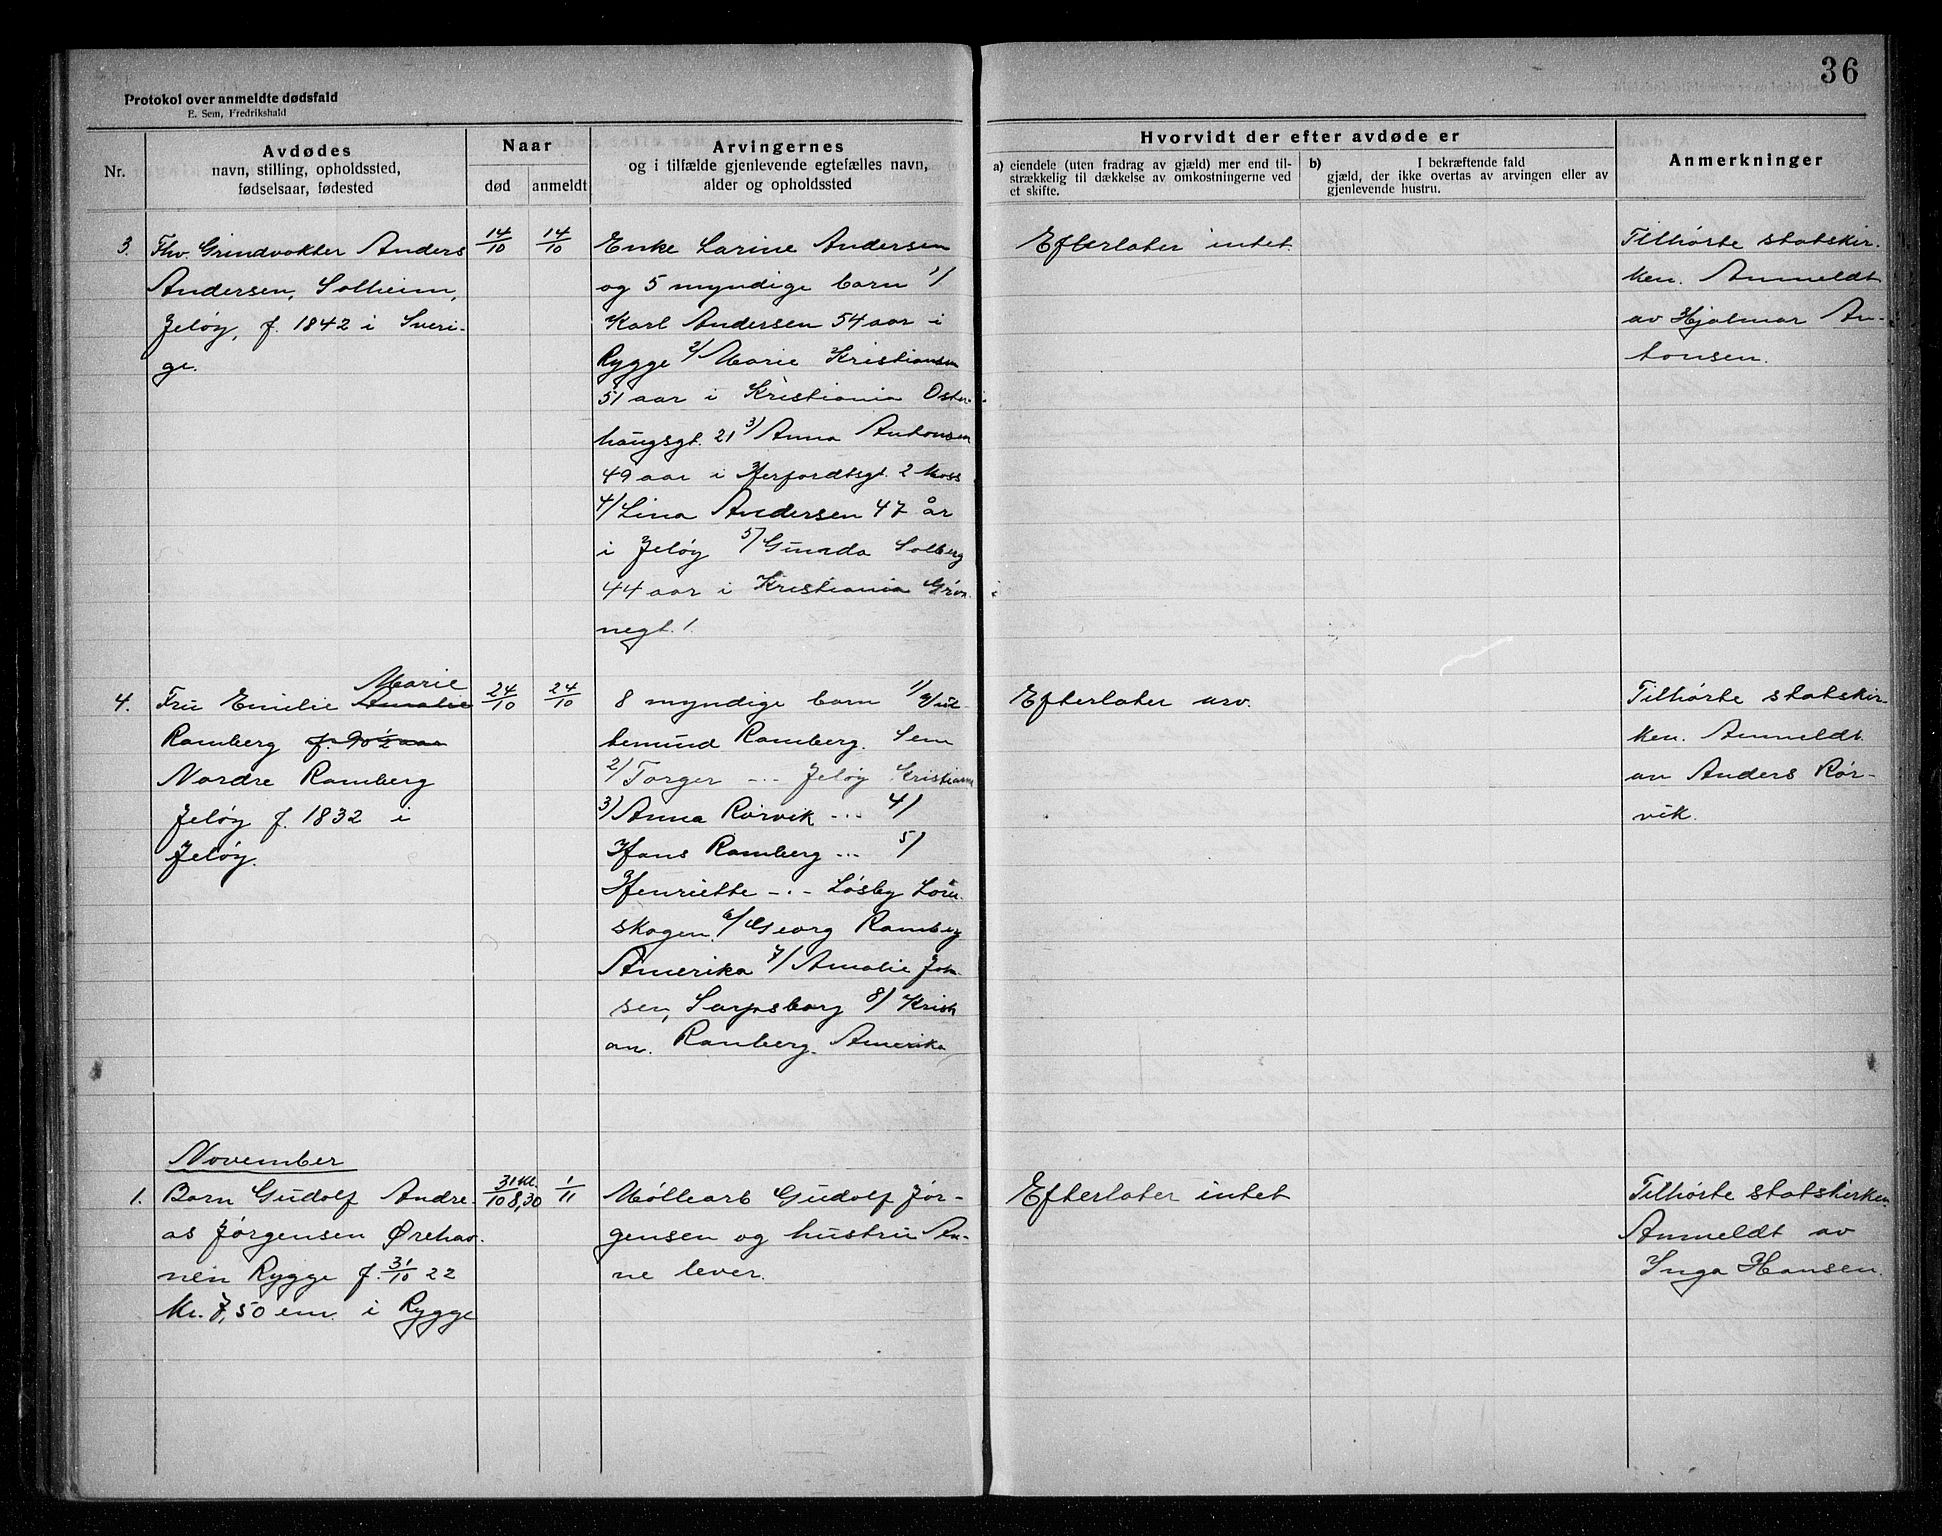 36
Protokol over anmeldte dødsfald
E. Sem, Fredrikshald
Nr.
Avdødes
navn, stilling, opholdssted,
fødselsaar, fødested
Naar
død
anmeldt
Arvingernes
og i tilfælde gjenlevende egtefælles navn,
alder og opholdssted
Hvorvidt der efter avdøde er
a) eiendele (uten fradrag av gjæld) mer end til-
strækkelig til dækkelse av omkostningerne ved
et skifte.
b) I bekræftende fald
gjæld, der ikke overtas av arvingen eller av
gjenlevende hustru.
Anmerkninger
3.
Fhv. Grindvokter Anders
Andersen, Solheim,
Jeløy, f. 1842 i Sveri-
ge.
14/10
14/10
Enke Larine Andersen
og 5 myndige barn 1/
Karl Andersen 54 aar i
Rygge 2/ Marie Kristiansen
51 aar i Kristiania Oster-
haugsgt. 21 3/ Anna Antonsen
49 aar i Herfordtsgt. 2 Moss
4/ Lina Andersen 47 år
i Jeløy 5/ Gunda Solberg
44 aar i Kristiania Grøn-
negt. 1.
Efterlater intet.
Tilhørte statskir-
ken. Anmeldt
av Hjalmar An-
tonsen.
4.
Marie
Fru Emilie Amalie
Ramberg f. 90 1/2 aar
Nordre Ramberg
Jeløy f. 1832 i
Jeløy.
24/10
24/10
8 myndige barn 1/
temund Ramberg. Sem
2/ Torger -"- Jeløy Kristiania
3) Anna Rörvik -"- 4)
Hans Ramberg -"- 5)
Henriette -"- Løsby Lören-
skogen 6/ Georg Ramberg
Amerika 7/ Amalie Joh-
sen, Sarpsborg 8/ Kristi
an. Ramberg. Amerika
Efterlater arv.
Tilhørte statskir-
ken. Anmeldt
an Anders Rör-
vik.
November
1.
Barn Gudolf Andre-
as Jørgensen Ørehav-
nen Rygge f. 31/10 22
Kl. 7,50 em. i Rygge
31/10 Kl. 8,30
1/11
Møllearb Gudolf Jør-
gensen og hustru An-
ne lever.
Efterlater intet
Tilhørte statskirken.
Anmeldt av
Inga Hansen.